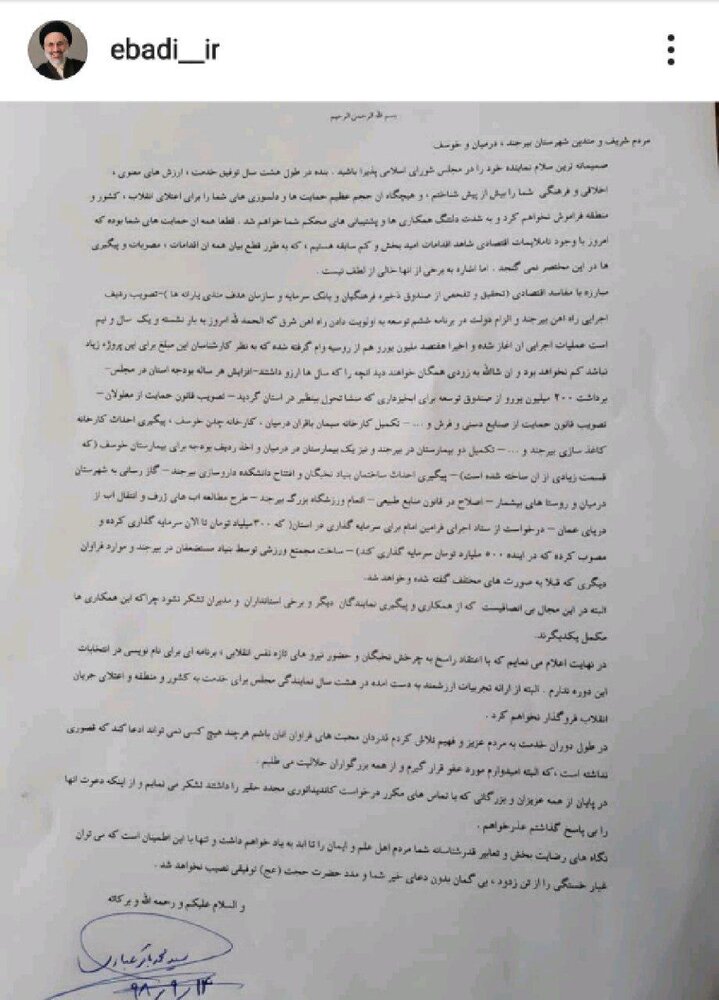 ebadi__ir
بسم الله الرحمن الرحیم
مردم شریف و متدین شهرستان بیرجند ، درمیان و خوسف
صمیمانه ترین سلام نماینده خود را در مجلس شورای اسلامی پذیرا باشید . بنده در طول هشت سال توفیق خدمت ، ارزش های معنوی ،
اخلاقی و فرهنگی شما را بیش از پیش شناختم ، و هیچگاه ان حجم عظیم حمایت ها و دلسوزی های شما را برای اعتلای انقلاب ، کشور و
منطقه فراموش نخواهم کرد و به شدت دلتنگ همکاری ها و پشتیبانی های محکم شما خواهم شد . قطعا همه ان حمایت های شما بوده که
امروز با وجود ناملایمات اقتصادی شاهد اقدامات امید بخش و کم سابقه هستیم ، که به طور قطع بیان همه ان اقدامات ، مصوبات و پیگیری
ها در این مختصر نمی گنجد . اما اشاره به برخی از انها خالی از لطف نیست .
مبارزه با مفاسد اقتصادی (تحقیق و تفحص از صندوق ذخیره فرهنگیان و بانک سرمایه و سازمان هدف مندی یارانه ها )-تصویب ردیف
اجرایی راه اهن بیرجند و الزام دولت در برنامه ششم توسعه به اولویت دادن راه اهن شرق که الحمد لله امروز به بار نشسته و یک سال و نیم
است عملیات اجرایی ان اغاز شده و اخیرا هفتصد ملیون یورو هم از روسیه وام گرفته شده که به نظر کارشناسان این مبلغ برای این پروژه زیاد
نباشد کم نخواهد بود و ان شاالله به زودی همگان خواهند دید انچه را که سال ها ارزو داشتند-افزایش هر ساله بودجه استان در مجلس-
برداشت ۲۰۰ میلیون یورو از صندوق توسعه برای ابخیزداری که منشا تحول بینظیر در استان گردید – تصویب قانون حمایت از معلولان –
تصویب قانون حمایت از صنایع دستی و فرش و ... – تکمیل کارخانه سیمان باقران درمیان . کارخانه چدن خوسف ، پیگیری احداث کارخانه
کاغذ سازی بیرجند و ... – تکمیل دو بیمارستان در بیرجند و نیز یک بیمارستان در درمیان و اخذ ردیف بودجه برای بیمارستان خوسف (که
قسمت زیادی از ان ساخته شده است) – پیگیری احداث ساختمان بنیاد نخبگان و افتتاح دانشکده داروسازی بیرجند – گاز رسانی به شهرستان
درمیان و روستا های بیشمار – اصلاح در قانون منابع طبیعی – اتمام ورزشگاه بزرگ بیرجند – طرح مطالعه اب های ژرف و انتقال اب از
دریای عمان – درخواست از ستاد اجرای فرامین امام برای سرمایه گذاری در استان( که ۳۰۰میلیاد تومان تا الان سرمایه گذاری کرده و
مصوب کرده که در اینده ۵۰۰ ملیارد تومان سرمایه گذاری کند) – ساخت مجمتع ورزشی توسط بنیاد مستضعفان در بیرجند و موارد فراوان
دیگری که قبلا به صورت های مختلف گفته شده و خواهد شد.
البته در این مجال بی انصافیست که از همکاری و پیگیری نمایندگان دیگر و برخی استانداران و مدیران تشکر نشود چراکه این همکاری ها
مکمل یکدیگرند.
در نهایت اعلام می نمایم که با اعتقاد راسخ به چرخش نخبگان و حضور نیرو های تازه نفس انقلابی ، برنامه ای برای نام نویسی در انتخابات
این دوره ندارم . البته از ارائه تجربیات ارزشمند به دست امده در هشت سال نمایندگی مجلس برای خدمت به کشور و منطقه و اعتلای جریان
انقلاب فروگذار نخواهم کرد .
در طول دوران خدمت به مردم عزیز و فهیم تلاش کردم قدردان محبت های فراوان انان باشم هرچند هیچ کسی نمی تواند ادعا کند که قصوری
نداشته است ، که البته امیدوارم مورد عفو قرار گیرم و از همه بزرگواران حلالیت می طلبم .
در پایان از همه عزیزان و بزرگانی که با تماس های مکرر درخواست کاندیداتوری مجدد حقیر را داشتند تشکر می نمایم و از اینکه دعوت انها
را بی پاسخ گذاشتم عذرخواهم .
نگاه های رضایت بخش و تعابیر قدرشناسانه شما مردم اهل علم و ایمان را تا ابد به یاد خواهم داشت و تنها با این اطمینان است که می توان
غبار خستگی را از تن زدود ، بی گمان بدون دعای خیر شما و مدد حضرت حجت (عج) توفیقی نصیب نخواهد شد .
و السلام علیکم و رحمه الله و برکاته
سید محمد باقر عبادی
۹۸/۹/۱۴